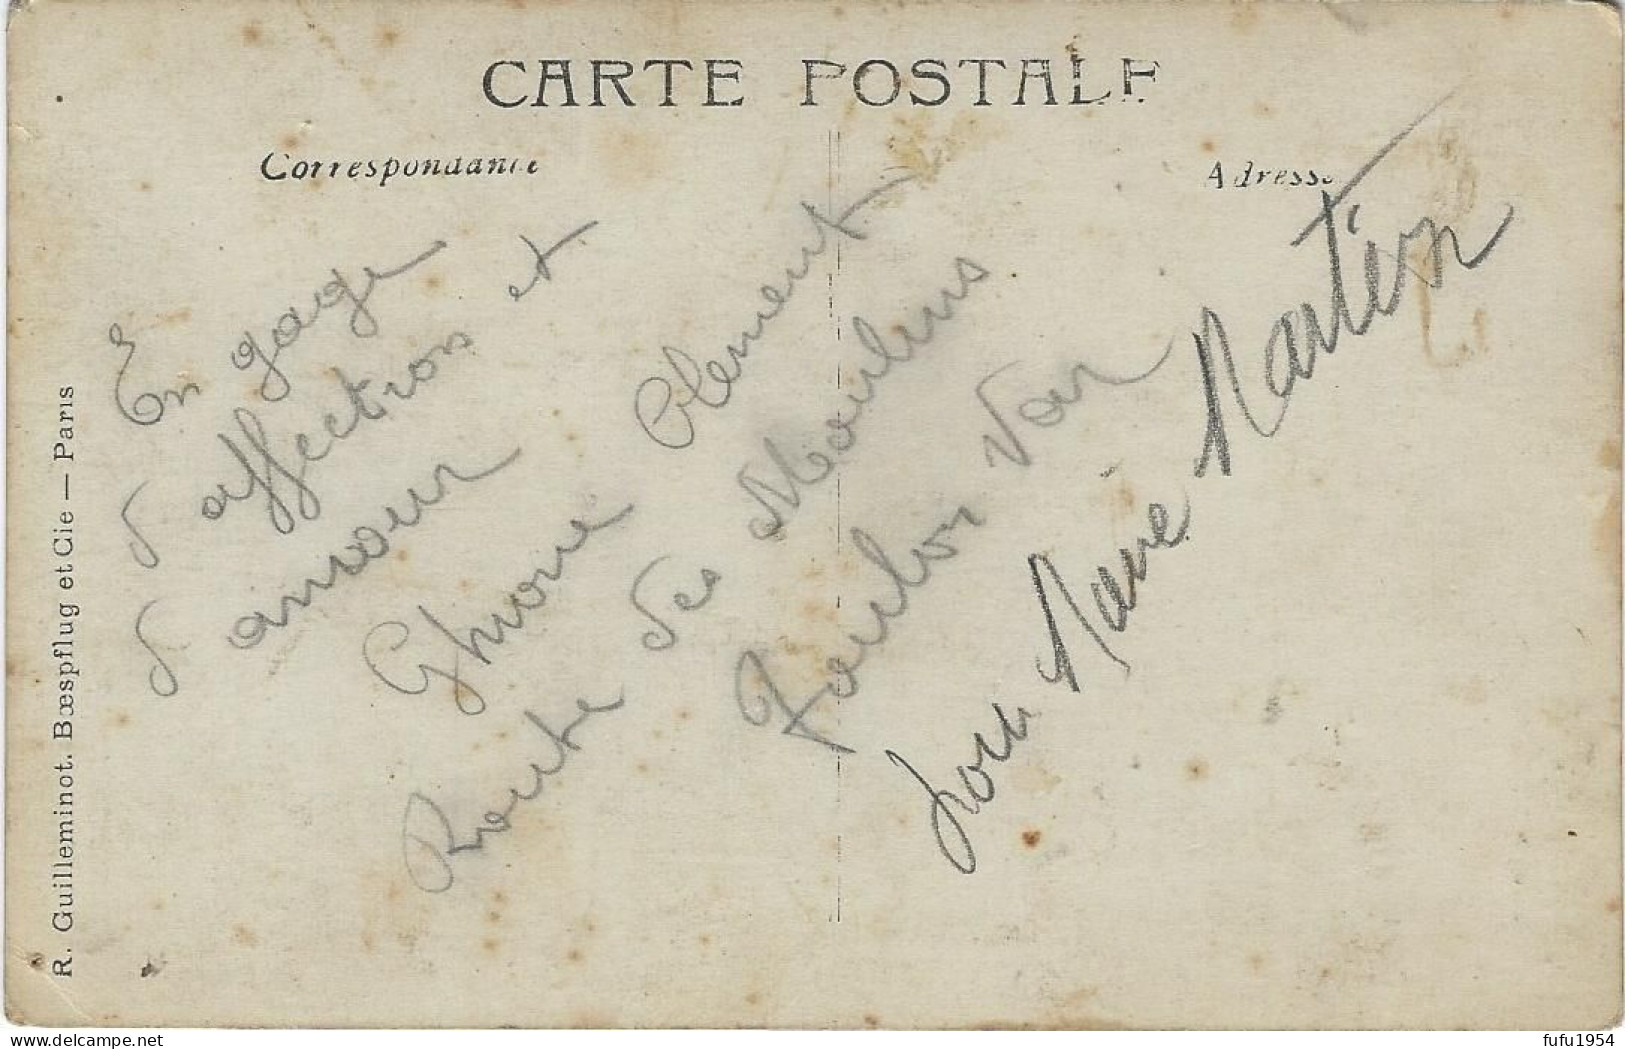 CARTE POSTALE
Correspondance
Adresse
En gage
d'affection et
d'amour
Clement
Route des Moulins
Toulon Var
Marie Martin
R. Guilleminot. Bœspflug et Cie — Paris
delcampe.net
fufu1954